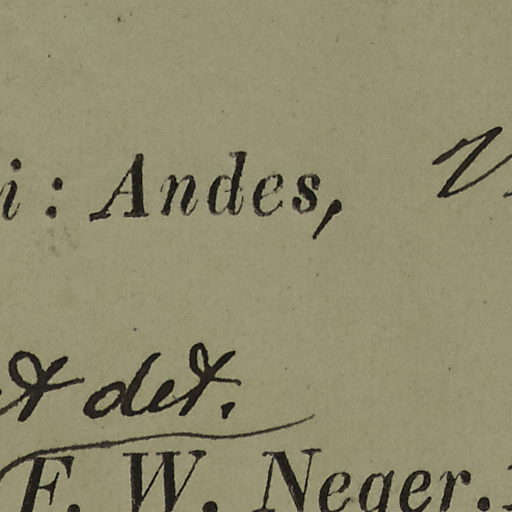 i: Andes,
& det.
F. W. Neger.